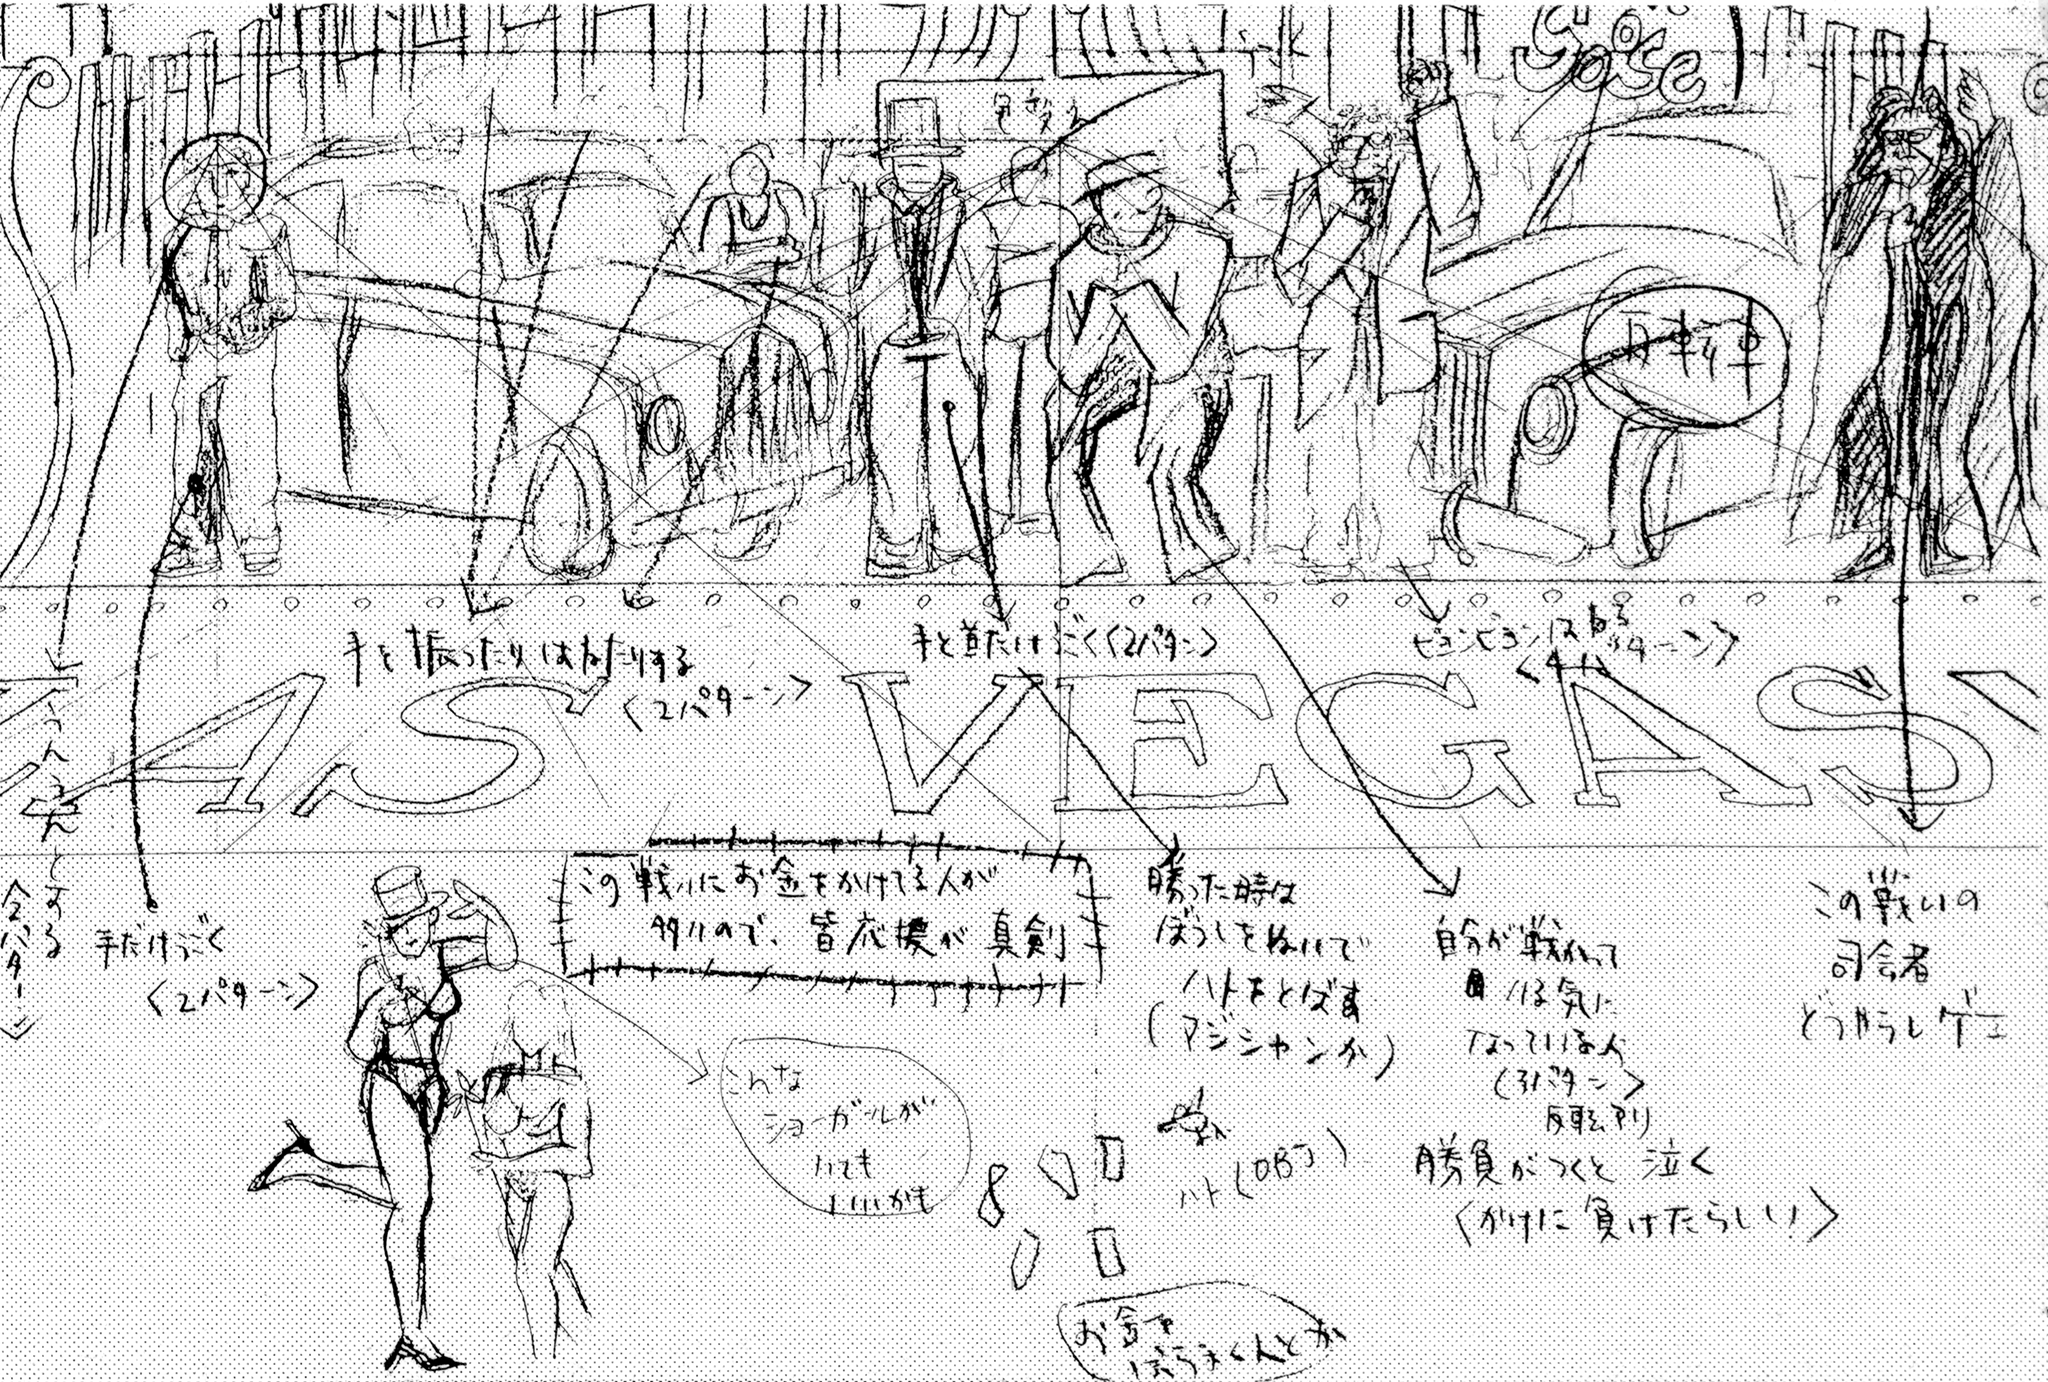 Golden
Goose
見せるん
自転車
手を振ったりはねたりする
〈2パターン〉
手と首だけ動く〈2パターン〉
ピョンピョンはねる
〈4パターン〉
LAS VEGAS
うんうんとする
〈2パターン〉
手だけ動く
〈2パターン〉
この戦いにお金をかけてる人が
多いので、皆応援が真剣
勝った時は
ぼうしをぬいで
ハトをとばす
(マジシャンか)
ハト(OBJ)
自分が戦かって
いる気に
なっている人
〈3パターン〉
反転アリ
勝負がつくと泣く
〈かけに負けたらしい〉
この戦いの
司会者
どうやらレゲエ
こんな
ショーガールが
いても
いいかも
お金を
ばらまく人とか